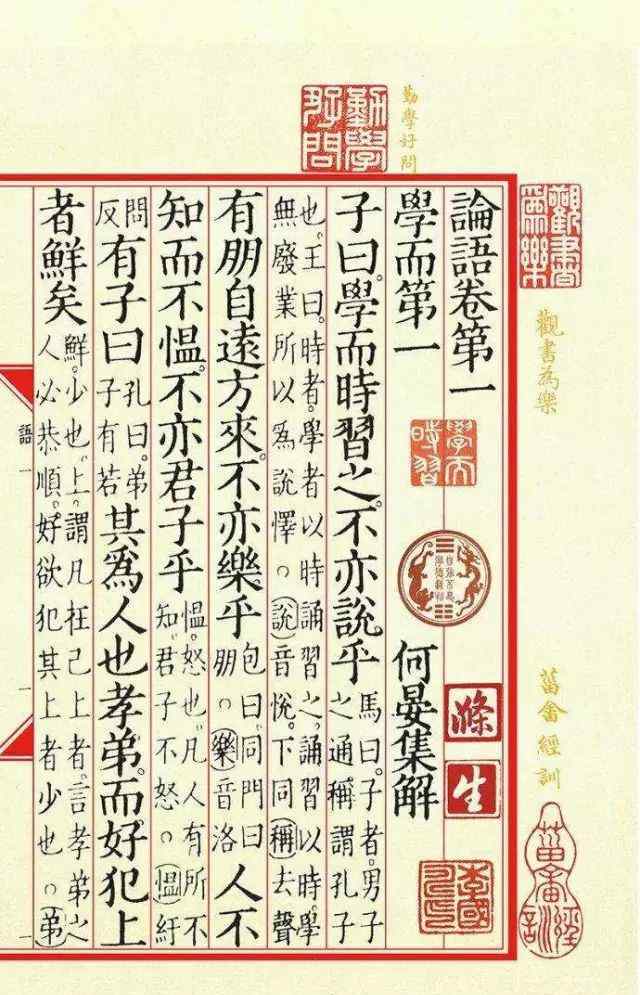 勤學好問
勤學好問
觀書為樂
觀書為樂
菑畬經訓
菑畬經訓
論語卷第一
學而時習
滌生
學而第一　何晏集解
子曰。學而時習之。不亦說乎
馬曰。子者。男子
之通稱。謂孔子
也。王曰。時者。學者以時誦習之。誦習以時學
無廢業所以為說懌。○(說)音悅。下同(稱)去聲
有朋自遠方來。不亦樂乎
包曰。同門曰
朋。○(樂)音洛
人不
知而不慍。不亦君子乎
慍。怒也。凡人有所不
知。君子不怒。○(慍)紆
問
反
有子曰
孔曰。弟
子有若
其爲人也孝弟。而好犯上
者鮮矣
鮮。少也。上。謂凡在己上者。言孝弟之
人必恭順。好欲犯其上者少也。○(弟)
語一
一